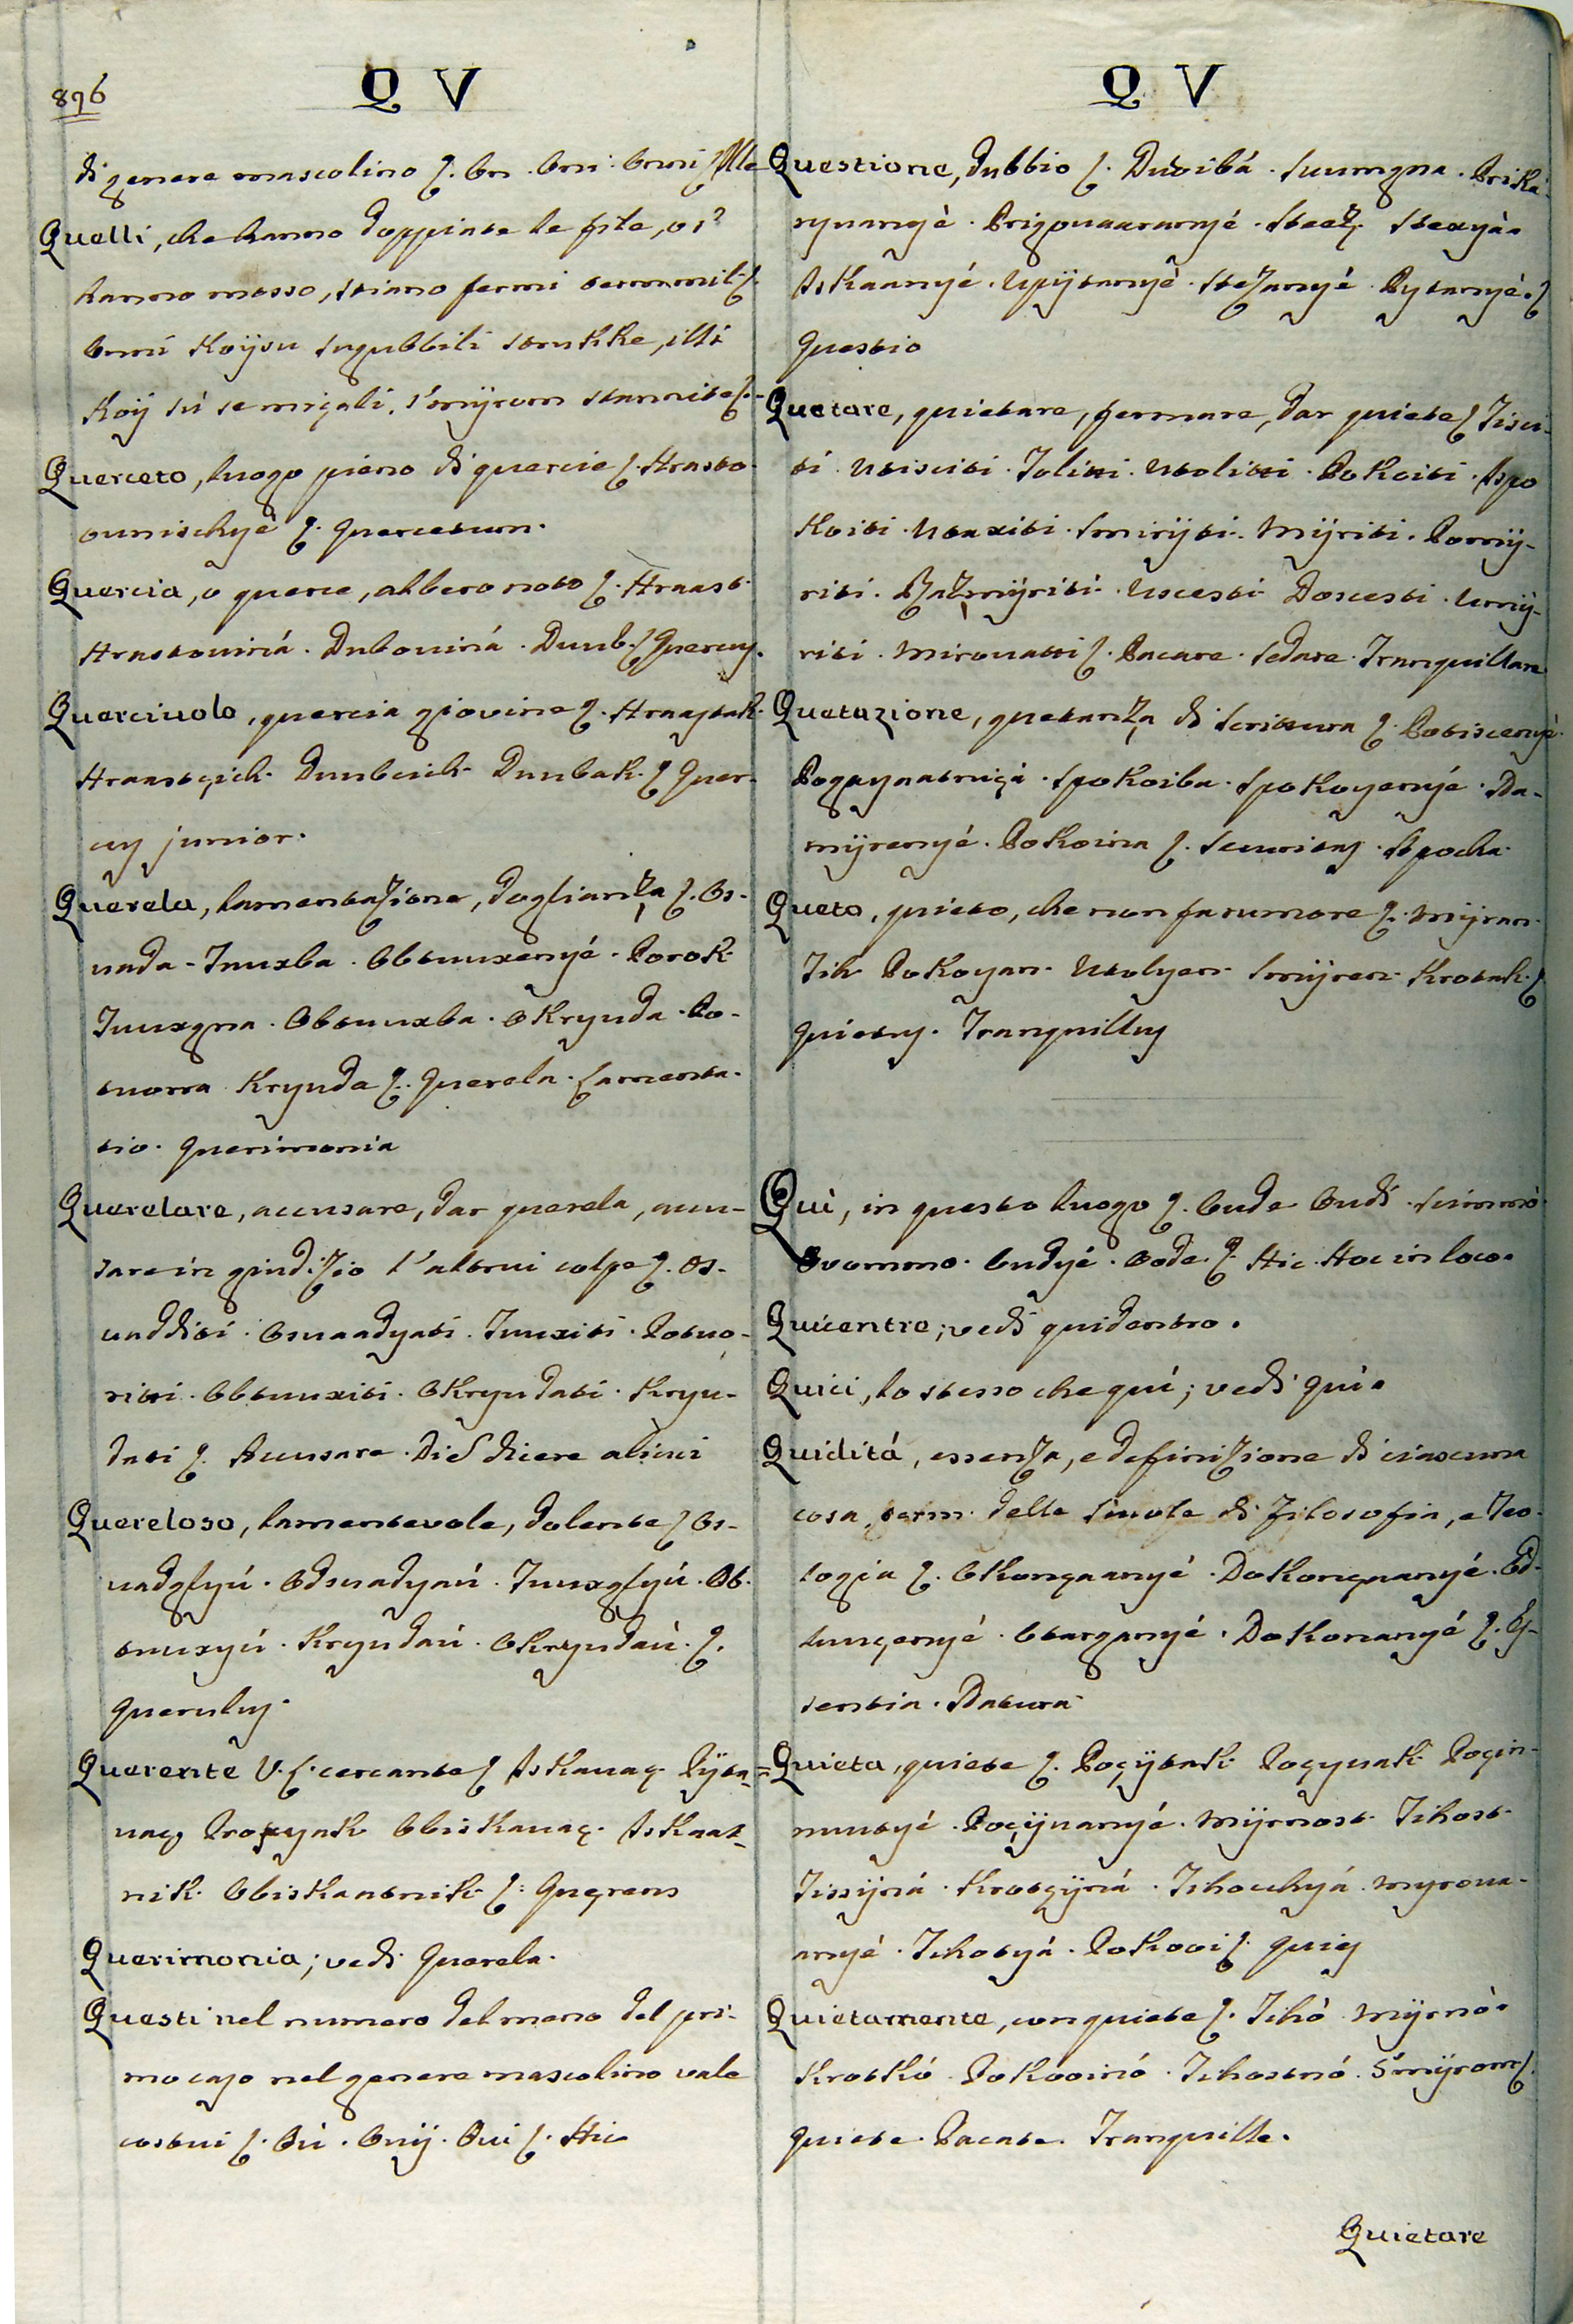 896
Q V
di genere mascolino ʃ. On. Oni. Onni ʃ Ille
Quelli, che hanno doppiate le file, o s'
hanno mosso, stiano fermi term. mil. ʃ.
Onni Koÿsu sugubbili strukke, illi
Koÿ sù se migali, s'mÿrom stannite ʃ.
Querceto, luogo pieno di quercie ʃ. Hrasto-
ounischye ʃ. Quercetum.
Quercia, o querce, albero noto ʃ. Hraast.
Hrastouiná. Dubouiná. Duub. ʃ Quercus.
Querciuolo, quercia giovine ʃ. Hraastak.
Hraastçich. Duubcich. Duubak. ʃ Quer-
cus junior.
Querela, lamentazione, doglianza ʃ. Os-
uada. Tuuxba. Obtuuxenyé. Porok
Tuuxgna. Obtuuxba. Okryuda. Po-
tuorra Kryuda ʃ. Querela. Lamenta-
tio. Querimonia
Querelare, accusare, dar querela, accu-
sare in giudizio l'altrui colpe ʃ. Os-
uadditi. Osuaadyati. Tuuxiti. Potuo-
riti. Obtuuxiti. Okryudati. Kryu-
dati ʃ. Accusare. Di
Quereloso, lamentevole, dolente ʃ Os-
uadglyú. Odsuadyaú. Tuuxglyú. Ob-
tuuxyú. Kryudaú. Okryudaú. ʃ.
Querulus.
Querente V. L. cercante ʃ Iskauaç. Pÿta-
uaç Proxynk Obiskauaç. Iskaat-
nik. Obiskaatnik ʃ. Quęrens
Querimonia; vedi Querela.
Questi nel numero del meno del pri-
mo caso nel genere mascolino vale
costui ʃ. Oú. Ouÿ. Oui ʃ. Hic
Q V
Questione, dubbio ʃ. Duoibá. Suumgna. Prika-
ryuangè. Prigouaaranyé. Steeʒ. Stexyá.
Iskaanyé. Upÿtanyè. Stezanyé. Pytanyé. ʃ
Questio
Quetare, quietare, fermare, dar quiete ʃ Tisci-
ti. Utisciti. Toliti. Utoliti. Pokoiti. Ispo
koiti. Utaxiti. Smirÿti. Mÿriti. Pomÿ-
riti. Razmÿriti. Uscesti Doscesti. Umÿ-
riti. Mirouatti ʃ. Pacare. Sedare. Tranquillare
Quetazione, quetanza di scrittura ʃ. Potiscenyé.
Pogaynatnigá. Spokoiba. Spokoyenyé. Na-
mÿrenyé. Pokoina ʃ. Securitas. Apocha.
Queto, quieto, che non fa rumore ʃ. Mÿran.
Tih Pokoyan. Utolyen. Smÿren. Krotak. ʃ
Quietus. Tranquillus
Quì, in questo luogo ʃ. Oude Oudi. Simmò.
Ovommo. Oudyé. Ode. ʃ. Hic. Hoc in loco.
Quicentre; vedi quidentro.
Quici, lo stesso che quì; vedi quì.
Quiditá, essenza, e definizione di ciascuna
cosa, term. delle scuole di filosofia, e Teo-
logia ʃ. Okonçaanyé. Dokonçuanyé. Od-
luuçenyé. Otarganyé. Dokonanyé ʃ. Es-
sentia. Natura
Quieta, quiete ʃ. Poçÿtak. Poçyuak. Poçin-
nuutyé. Poçÿuanyé. Mÿrnost. Tihost.
Tissÿná. Krotçÿná. Tihochyá. Myroua-
anyé. Tihotyá. Pokooi ʃ. Quies
Quietamente, con quiete ʃ. Tihò. Mÿrnò.
Krotkó. Pokooinó. Tihostnó. S'mÿrom ʃ.
Quiete. Pacate. Tranquille.
Quietare